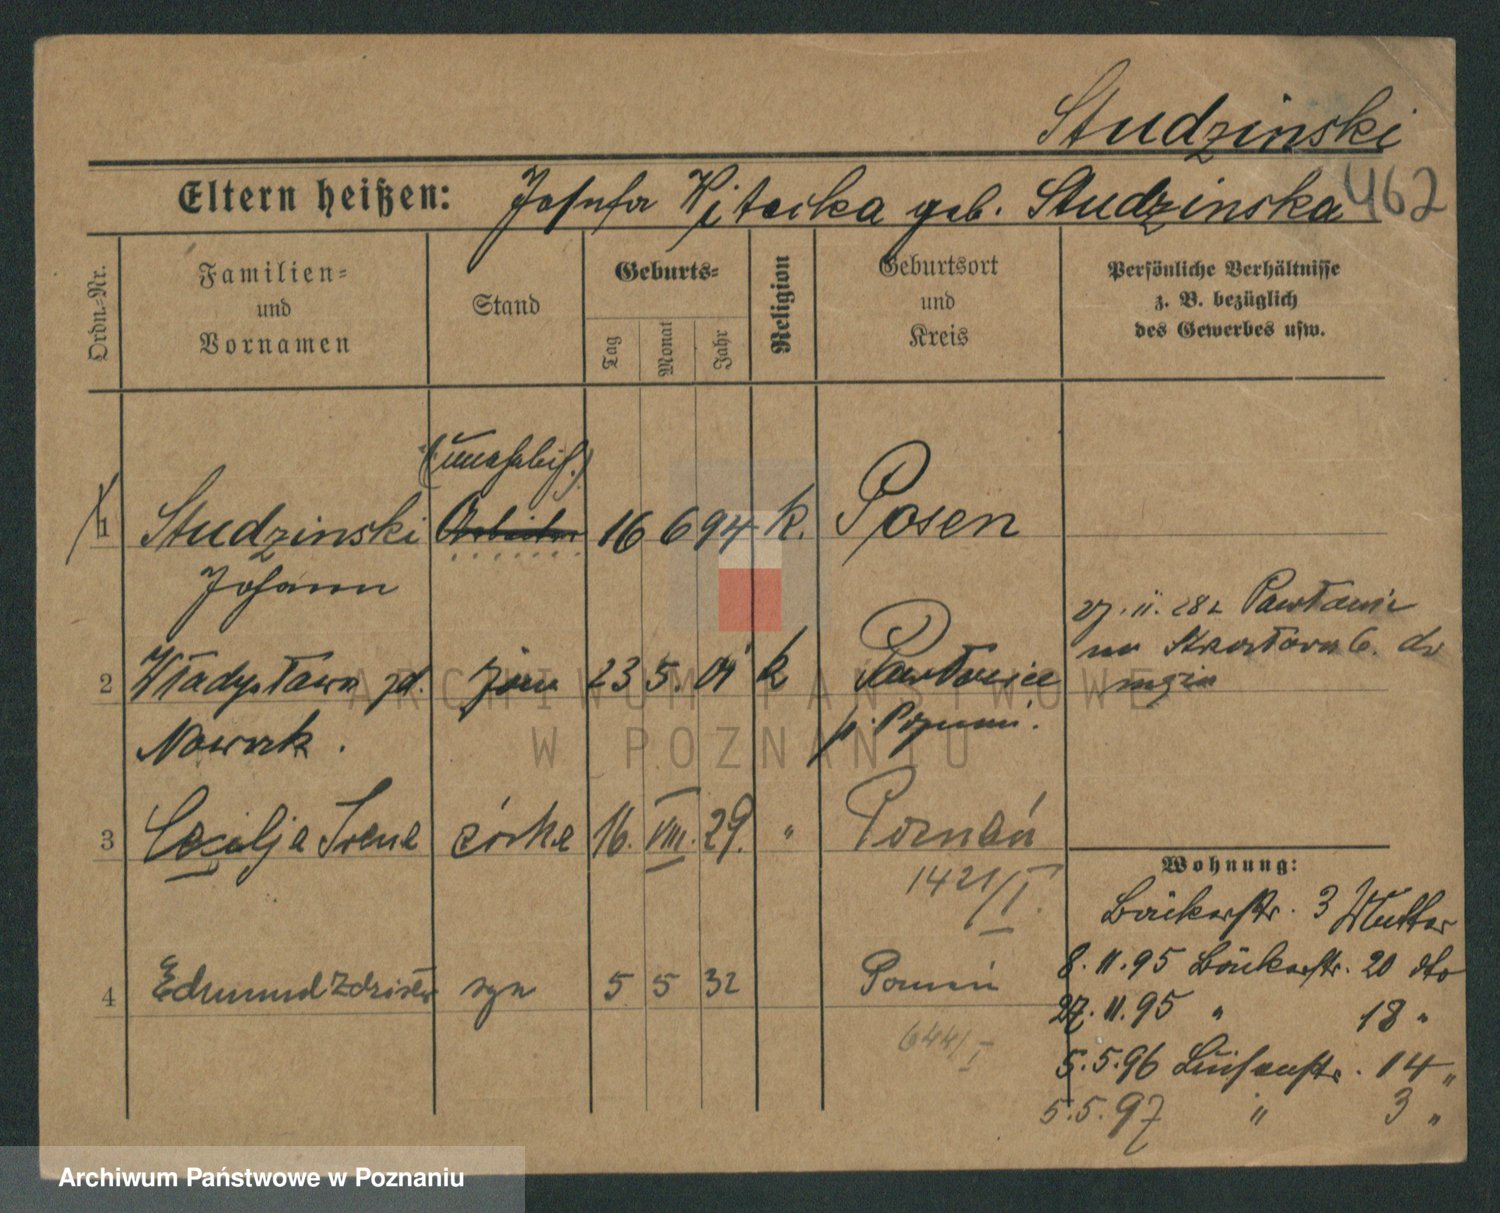 Studzinski
Eltern heißen: Josefa Witecka geb. Studzinska 462
Ordn.-Nr.
Familien-
und
Vornamen
Stand
Geburts-
Tag
Monat
Jahr
Religion
Geburtsort
und
Kreis
Persönliche Verhältnisse
z. B. bezüglich
des Gewerbes usw.
(unehelich.)
1 Studzinski Arbeiter 16 6 94 k. Posen
Johann
2 Władysława zd. żona 23 5. 01 k Pawłowice
Nowak. p. Poznań.
27. II. 282 Pawłowic
na
3 Cecylja Irena córka 16. VIII. 29. " Poznań
1421/I.
4 Edmund Zdzisław syn 5 5 32 Poznań
644/I
Wohnung:
Bäckerstr. 3 Mutter
8. 11. 95 Bäckerstr. 20 dto
27. 11. 95 " 18 "
5. 5. 96 Luisenstr. 14 "
5. 5. 97 " 3 "
ARCHIWUM PAŃSTWOWE
W POZNANIU
Archiwum Państwowe w Poznaniu